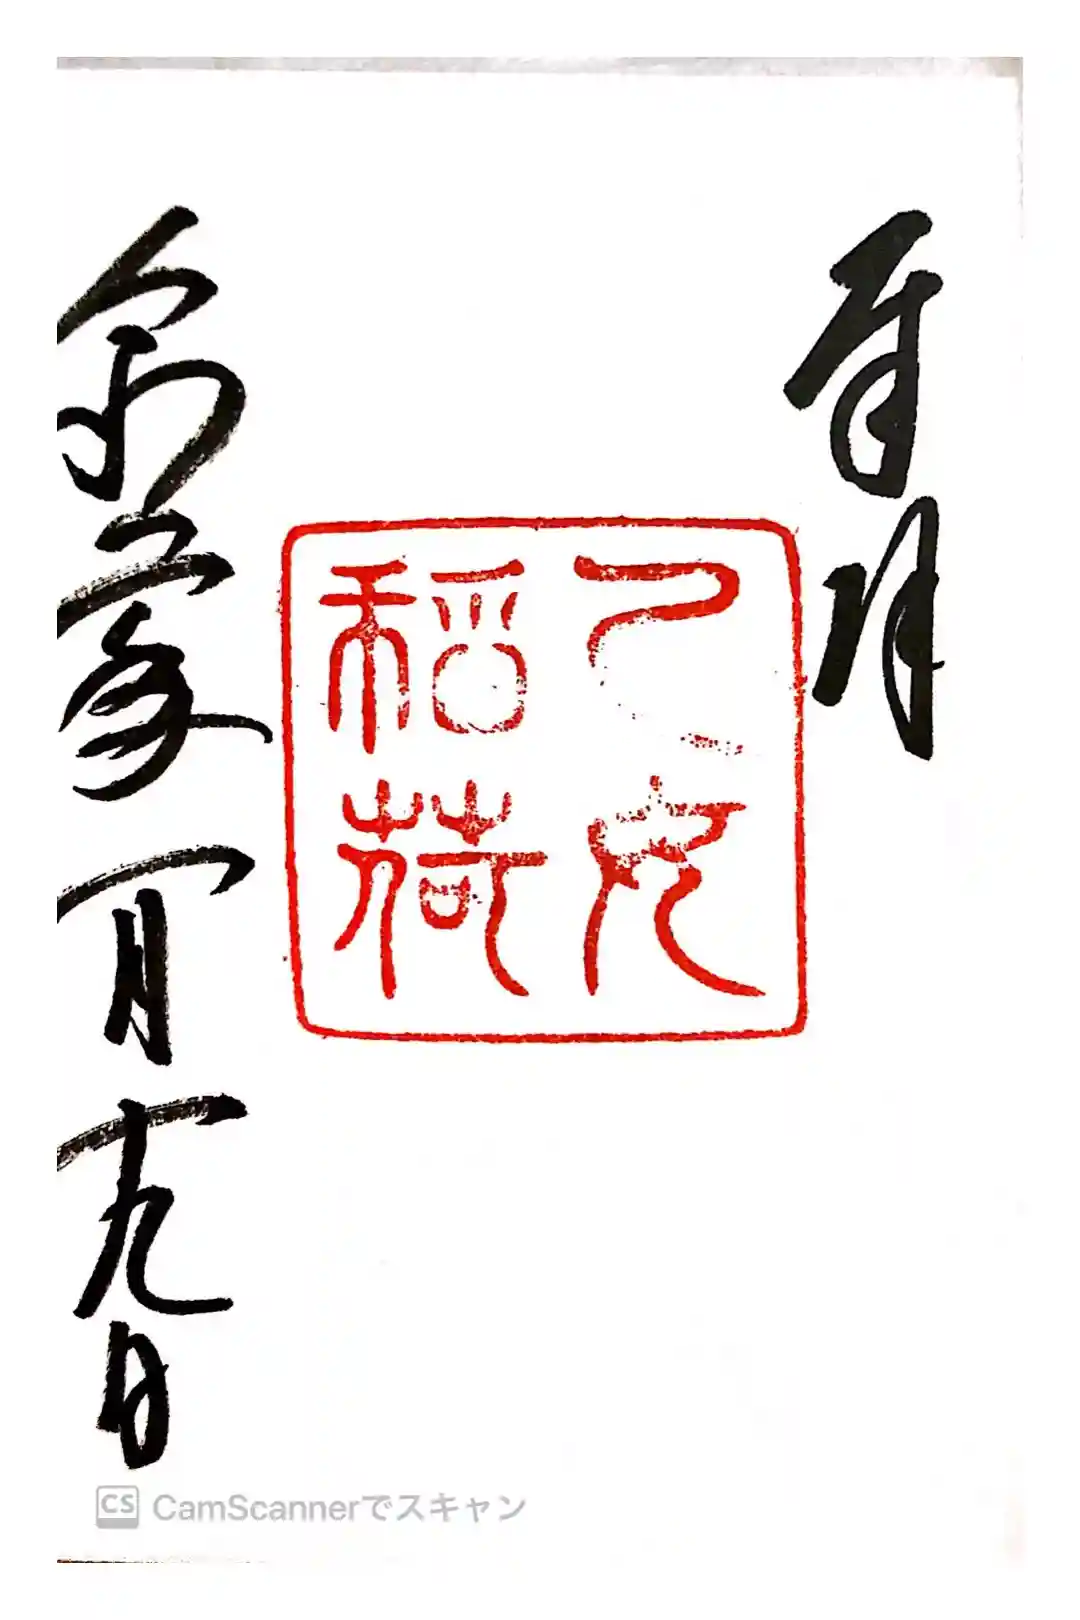 奉拝
乙女
稲荷
令和六年一月十九日
CS CamScannerでスキャン